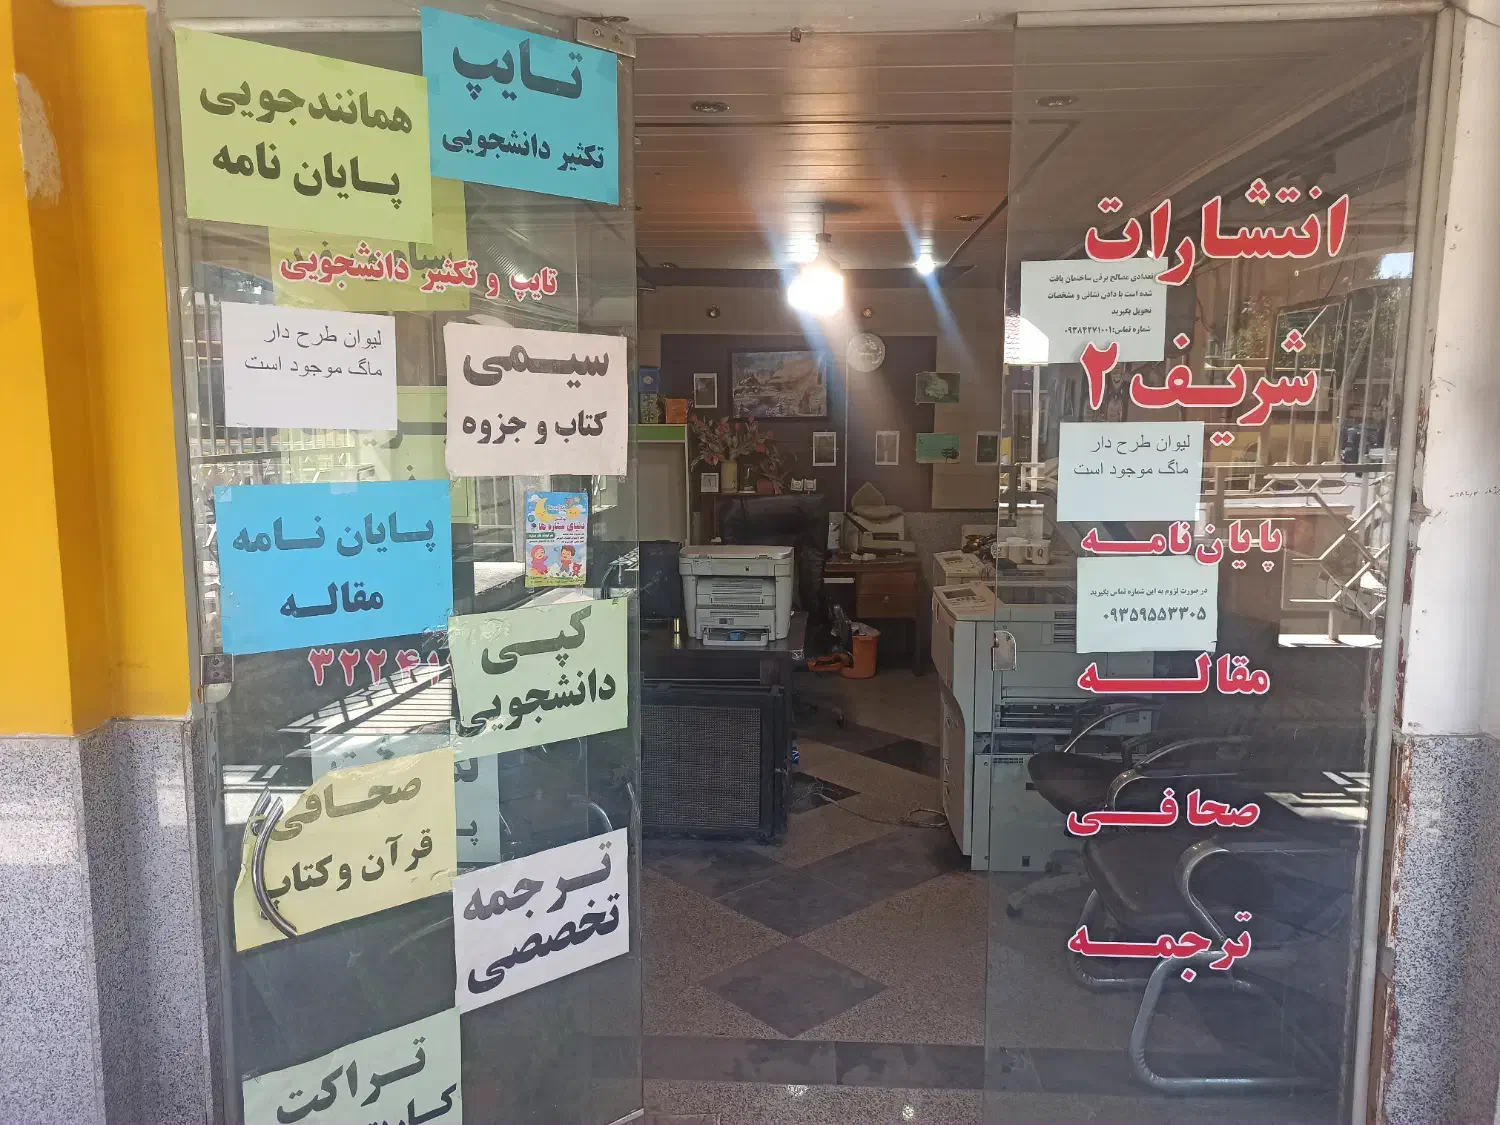 تایپ
تکثیر دانشجویی
همانندجویی
پایان نامه
تایپ و تکثیر دانشجویی
لیوان طرح دار
ماگ موجود است
سیمی
کتاب و جزوه
پایان نامه
مقاله
دنیای ستاره ها
۳۲۲۴۱
کپی
دانشجویی
صحافی
قرآن و کتاب
ترجمه
تخصصی
تراکت
انتشارات
تعدادی مصالح برقی ساختمان یافت
شده است با دادن نشانی و مشخصات
تحویل بگیرید
شماره تماس:۰۹۳۸۴۲۷۱۰۰۱
شریف ۲
لیوان طرح دار
ماگ موجود است
پایان نامه
در صورت لزوم به این شماره تماس بگیرید
۰۹۳۵۹۵۵۳۳۰۵
مقاله
صحافی
ترجمه